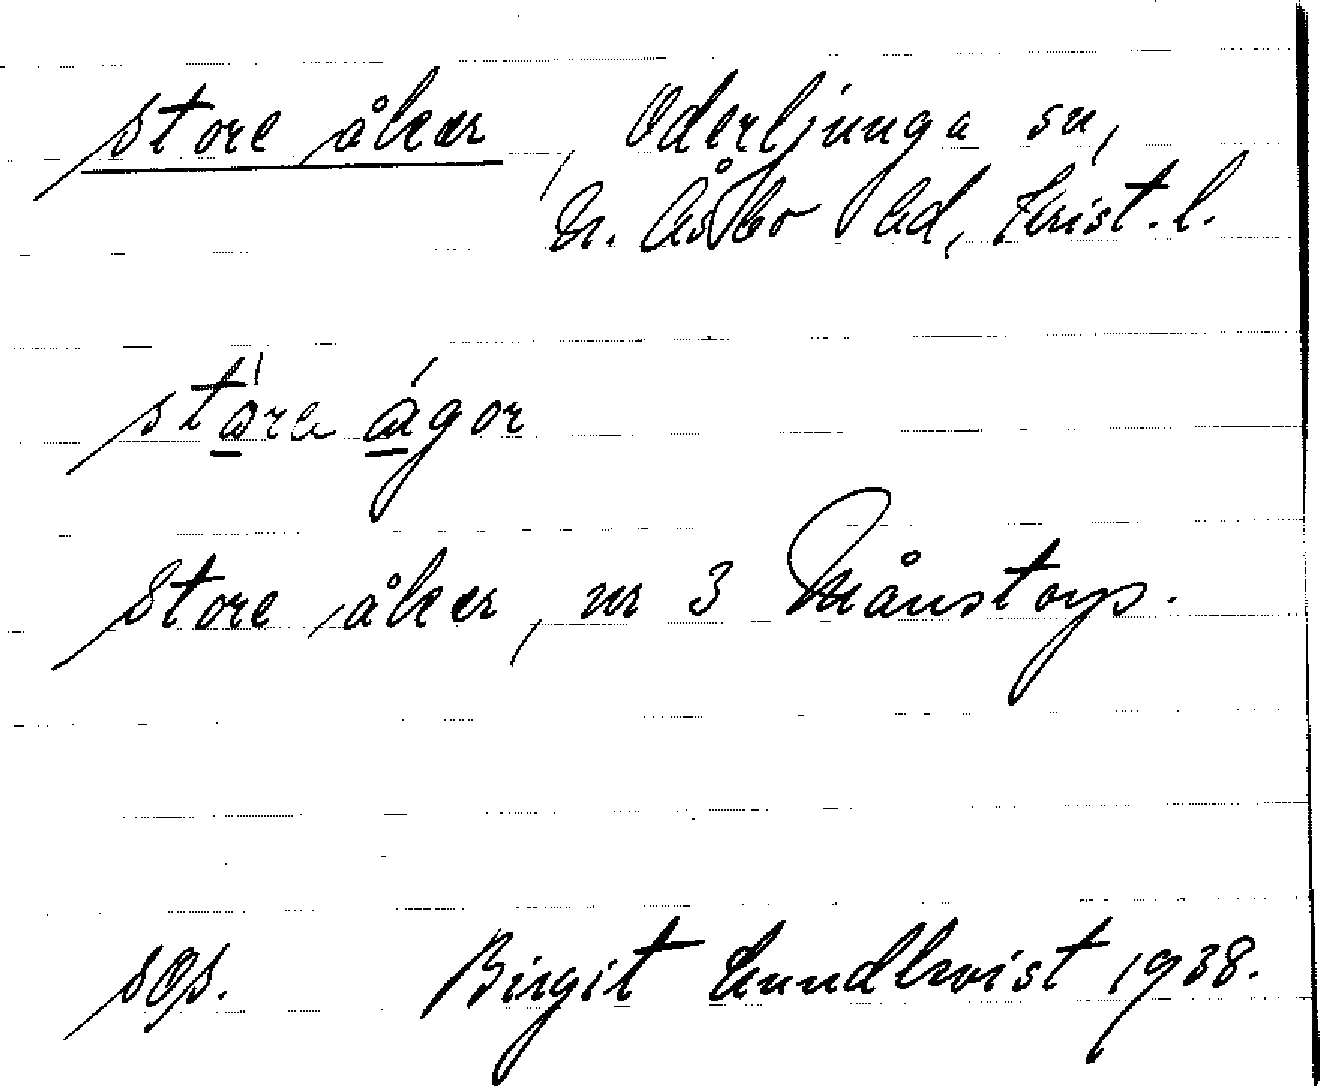 store åker, Oderljunga sn,
N. Åsbo hd, Krist. l.
stǻra ágor
Store åker, nr 3 Månstorp.
Birgit Lundkvist 1938.